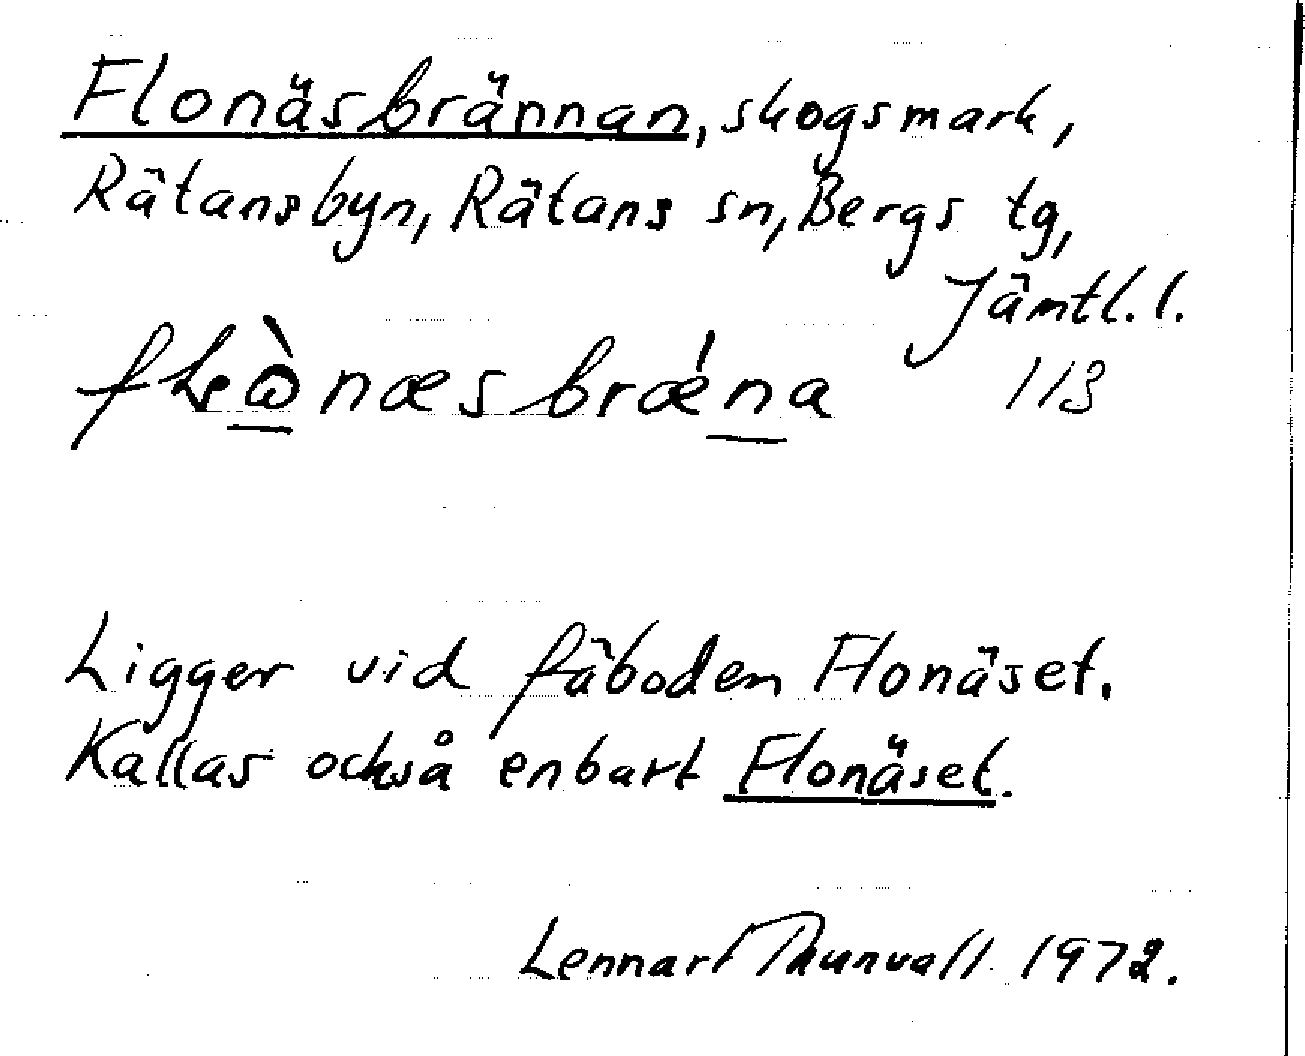 Flonäsbrännan, skogsmark,
Rätansbyn, Rätans sn, Bergs tg,
Jämtl. l.
113
Ligger vid fäboden Flonäset.
Kallas också enbart Flonäset.
Lennart Thunvall 1972.